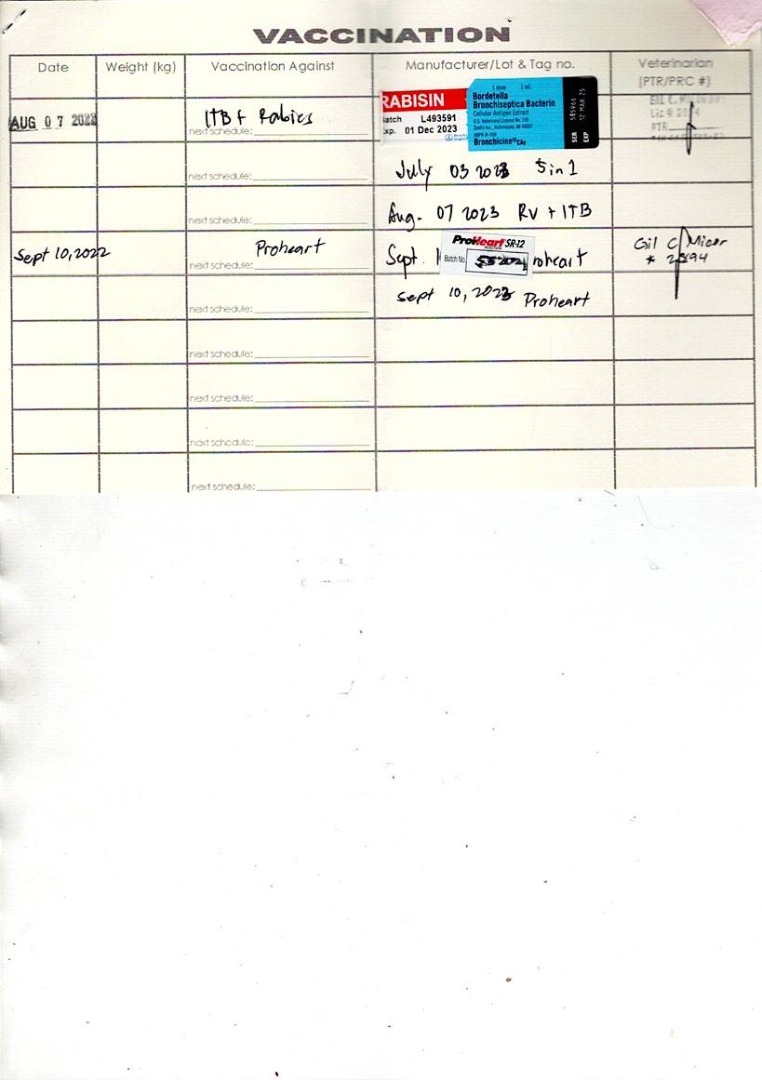 VACCINATION
Date Weight (kg) Vaccination Against Manufacturer/Lot & Tag no. Veterinarian (PTR/PRC #)
AUG 07 2022
ITB + Rabies
next schedule:
RABISIN
Batch L493591
Exp. 01 Dec 2023
1 dose 1 mL
Bordetella
Bronchiseptica Bacterin
Cellular Antigen Extract
Bronchicine®CAe
SER
EXP 12 MAR 25
Lic #
PTR
next schedule:
July 03 2023 5 in 1
next schedule:
Aug. 07 2023 RV + ITB
Sept 10, 2022
Proheart
next schedule:
Sept.
ProHeart SR-12
Batch No.
roheart
Gil C
next schedule:
Sept 10, 2023 Proheart
next schedule:
next schedule:
next schedule:
next schedule: